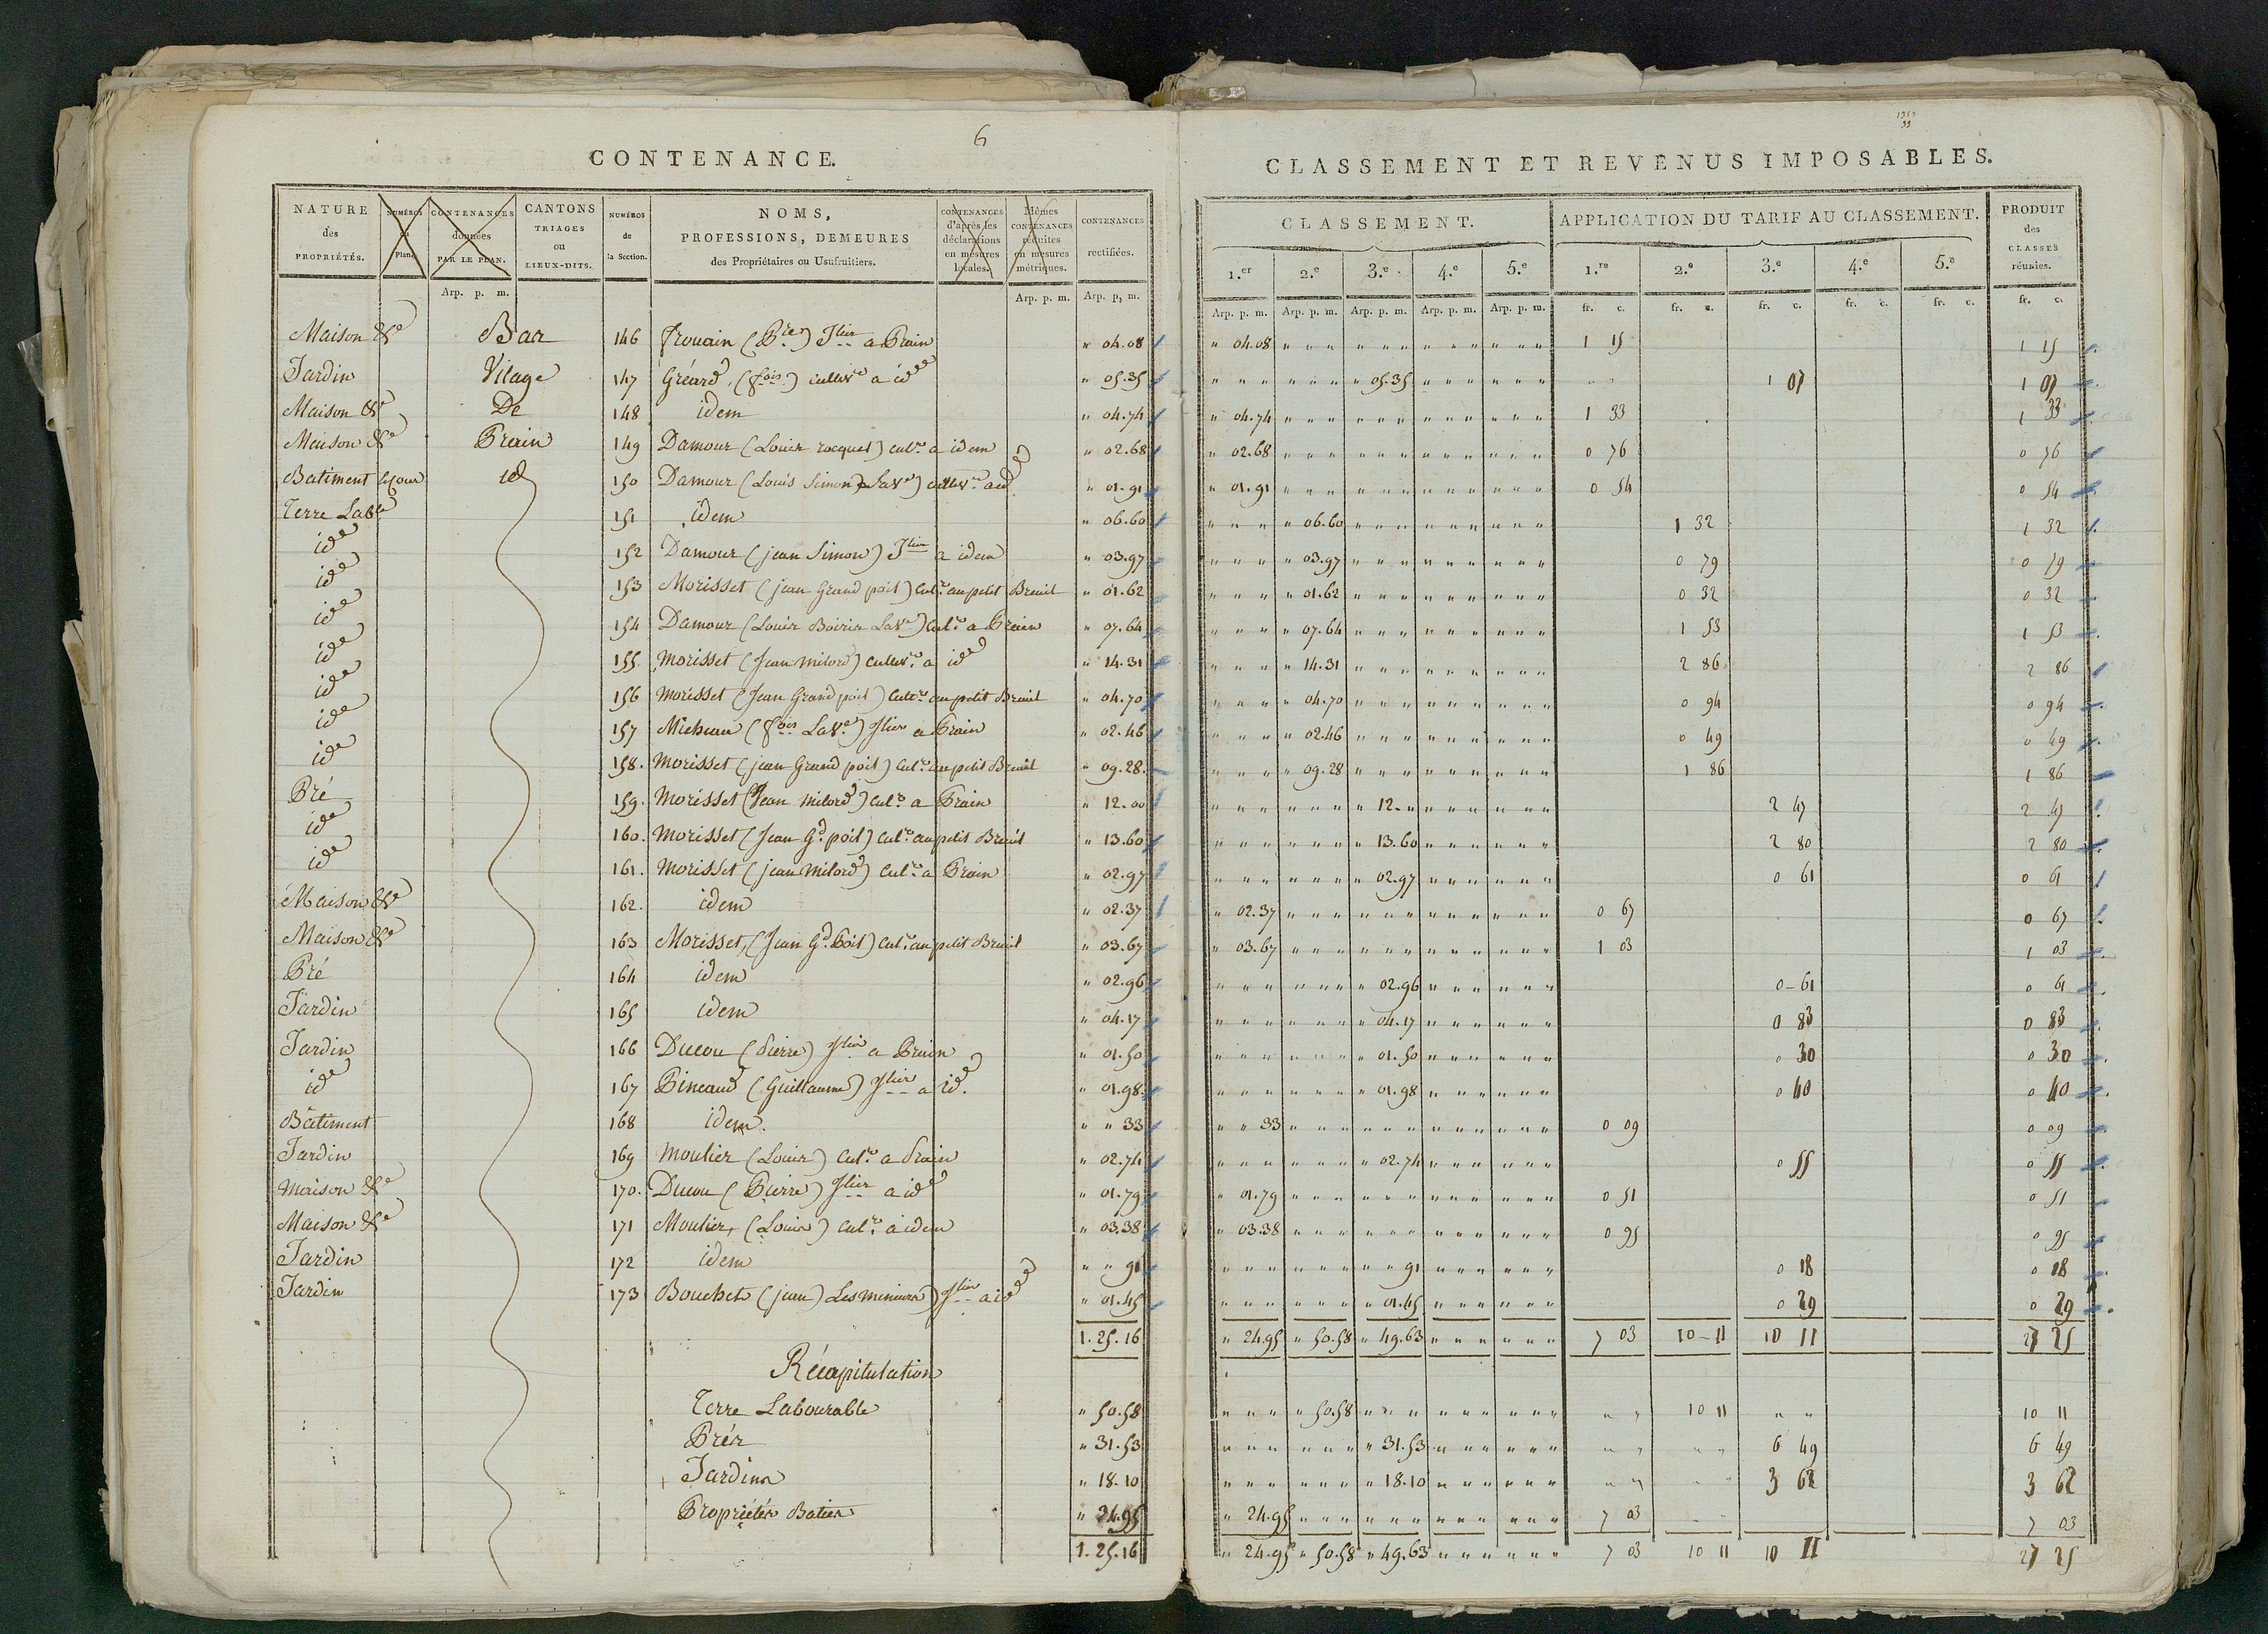 6
CONTENANCE.
NATURE des PROPRIÉTÉS. NUMÉROS du Plan. CONTENANCES données PAR LE PLAN. CANTONS TRIAGES ou LIEUX-DITS. NUMÉROS de la Section. NOMS, PROFESSIONS, DEMEURES des Propriétaires ou Usufruitiers. CONTENANCES d'après les déclarations en mesures locales. Mêmes CONTENANCES réduites en mesures métriques. CONTENANCES rectifiées.
Arp. p. m. Arp. p. m. Arp. p. m.
Maison &a Bas 146 (Pre) Jlier a Brain " 04.08
Jardin Vilage 147 Gréard, (fois) cultivr a ide " 05.35
Maison &a De 148 idem " 04.74
Maison &a Brain 149 Damour (Louis rocquet) culr a idem " 02.68
Batiment et cour id 150 Damour (Louis Simon La Ve) a id " 01.91
Terre Labe 151 idem " 06.60
ide 152 Damour (jean Simon) Jlier a idem " 03.97
ide 153 Morisset (jean Grand poit) culr au petit Breuil " 01.62
ide 154 Damour (Louis La Ve) culr a Brain " 07.64
ide 155. Morisset (Jean milord) cultivr a ide " 14.31
ide 156 Morisset (Jean Grand poit) cultr au petit Breuil " 04.70
ide 157 Micheau (fois La Ve) Jlier a Brain " 02.46
ide 158. Morisset (jean Grand poit) culr au petit Breuil " 09.28.
Pré 159. Morisset (Jean milord) culr a Brain " 12.00
ide 160. Morisset (Jean Gd poit) culr au petit Breuil " 13.60
ide 161. Morisset (jean milord) culr a Brain " 02.97
Maison &a 162. idem " 02.37
Maison &a 163 Morisset, (Jean Gd Poit) culr au petit Breuil " 03.67
Pré 164 idem " 02.96
Jardin 165 idem " 04.17
Jardin 166 Ducou (Pierre) Jlier a Brain " 01.50
ide 167 Pineaud (Guillaume) Jlier a id. " 01.98
Bâtiment 168 idem. " " 33
Jardin 169 Moulier (Louis) culr a Brain " 02.74
Maison &a 170. Ducou (Pierre) Jlier a ide " 01.79
Maison &a 171 Moulier, (Louis) culr à idem " 03.38
Jardin 172 idem " " 91
Jardin 173 Bouchet (jean) Les mineurs) Jlier a ide " 01.45
1.25.16
Récapitulation
Terre Labourable " 50.58
Prés " 31.53
Jardins " 18.10
Propriétés Baties " 24.95
1.25.16
CLASSEMENT ET REVENUS IMPOSABLES.
CLASSEMENT. APPLICATION DU TARIF AU CLASSEMENT. PRODUIT des CLASSES réunies.
1.er 2.e 3.e 4.e 5.e 1.re 2.e 3.e 4.e 5.e
Arp. p. m. Arp. p. m. Arp. p. m. Arp. p. m. Arp. p. m. fr. c. fr. c. fr. c. fr. c. fr. c. fr. c.
" 04.08 1 15 1 15
" 05.35 1 07 1 07
" 04.74 1 33 1 33
" 02.68 0 76 0 76
" 01.91 0 54 0 54
" 06.60 1 32 1 32
" 03.97 0 79 0 79
" 01.62 0 32 0 32
" 07.64 1 53 1 53
" 14.31 2 86 2 86
" 04.70 0 94 0 94
" 02.46 0 49 0 49
" 09.28 1 86 1 86
" 12. " 2 47 2 47
" 13.60 2 80 2 80
" 02.97 0 61 0 61
" 02.37 0 67 0 67
" 03.67 1 03 1 03
" 02.96 0-61 0 61
" 04.17 0 83 0 83
" 01.50 0 30 0 30
" 01.98 0 40 0 40
" " 33 0 09 0 09
" 02.74 0 55 0 55
" 01.79 0 51 0 51
" 03.38 0 95 0 95
" " 91 0 18 0 18
" 01.45 0 29 0 29
" 24.95 " 50.58 " 49.63 7 03 10-11 10 11 27 25
" 50.58 10 11 10 11
" 31.53 6 49 6 49
" 18.10 3 62 3 62
" 24.95 7 03 7 03
" 24.95 " 50.58 " 49.63 7 03 10 11 10 11 27 25